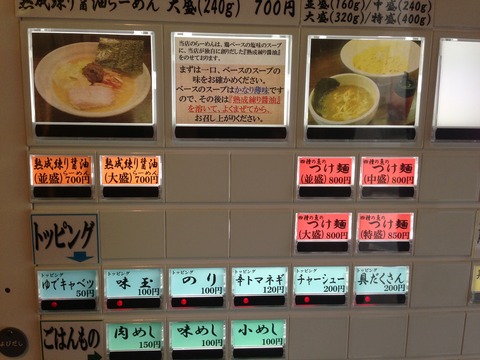 熟成練り醤油らーめん 大盛(240g) 700円
並盛(160g)/中盛(240g)
大盛(320g)/特盛(400g)
当店のらーめんは、鶏ベースの塩味のスープ
に、当店が独自に創りだした『熟成練り醤油』
をのせております。
まずは一口、ベースのスープの
味をお確かめください。
ベースのスープはかなり薄味です
ので、その後は『熟成練り醤油』
を溶いて、よくまぜてから、
お召し上がりください。
熟成練り醤油
らーめん
(並盛)700円
熟成練り醤油
らーめん
(大盛)700円
四種の魚の
つけ麺
(並盛)800円
四種の魚の
つけ麺
(中盛)800円
トッピング
四種の魚の
つけ麺
(大盛)850円
四種の魚の
つけ麺
(特盛)850円
トッピング
ゆでキャベツ
50円
トッピング
味玉
100円
トッピング
のり
100円
トッピング
辛トマネギ
120円
トッピング
チャーシュー
200円
トッピング
具だくさん
200円
ごはんもの
肉めし
150円
味めし
100円
小めし
100円
よびだし